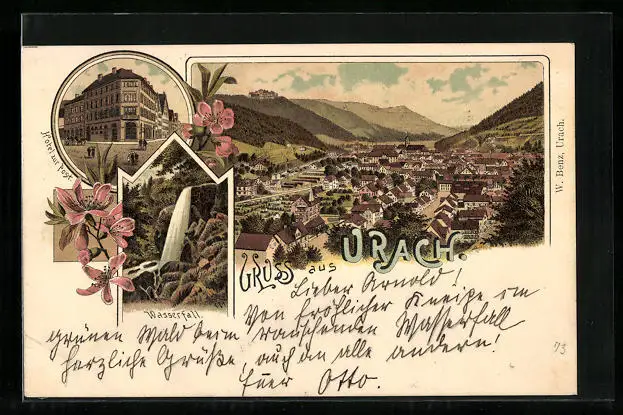 Hotel zur Post.
Wasserfall.
GRUSS aus URACH.
W. Benz, Urach.
Lieber Arnold!
Von fröhlicher Kneipe im
grünen Wald beim rauschenden Wasserfall
herzliche Grüße, auch an alle andern!
Euer Otto.
73